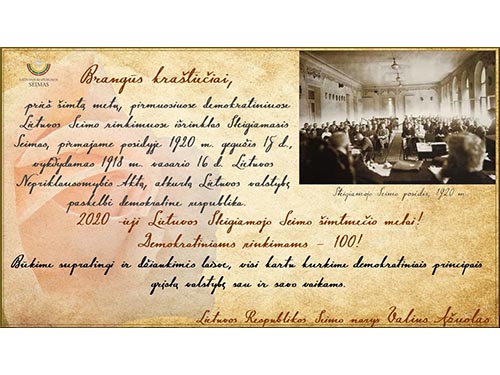 LIETUVOS RESPUBLIKOS
SEIMAS
Brangūs kraštiečiai,
prieš šimtą metų, pirmuosiuose demokratiniuose
Lietuvos Seimo rinkimuose išrinktas Steigiamasis
Seimas, pirmajame posėdyje 1920 m. gegužės 15 d.,
vykdydamas 1918 m. vasario 16 d. Lietuvos
Nepriklausomybės Aktą, atkurtą Lietuvos valstybę
paskelbė demokratine respublika.
Steigiamojo Seimo posėdis, 1920 m.
2020 -ieji Lietuvos Steigiamojo Seimo šimtmečio metai!
Demokratiniams rinkimams – 100!
Būkime supratingi ir džiaukimės laisve, visi kartu kurkime demokratiniais principais
grįstą valstybę sau ir savo vaikams.
Lietuvos Respublikos Seimo narys Valius Ąžuolas